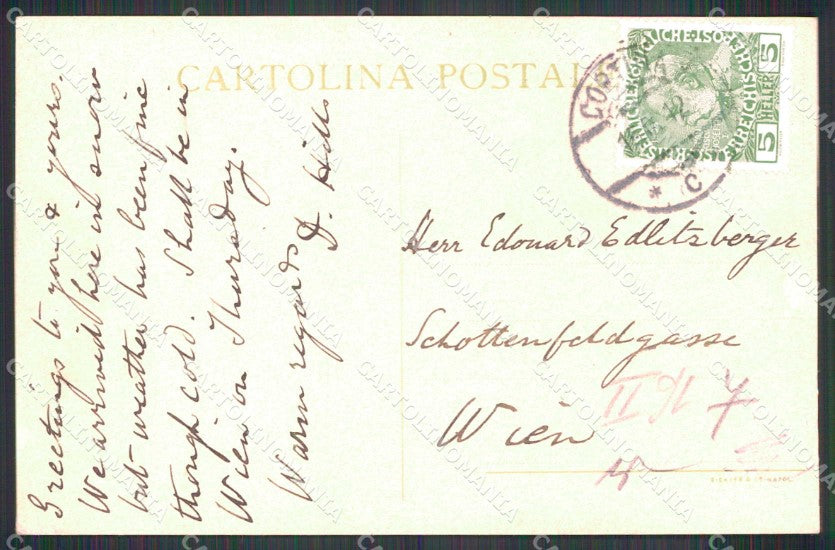 CARTOLINA POSTALE
Greetings to you & yours.
We arrived here in snow
but weather has been fine
though cold. Shall be in
Wien on Thursday.
Warm regards
D. Hills
5 HELLER 5
C
Herr Edouard Edlitzberger
Schottenfeldgasse
Wien
II
7
CARTOLINOMANIA